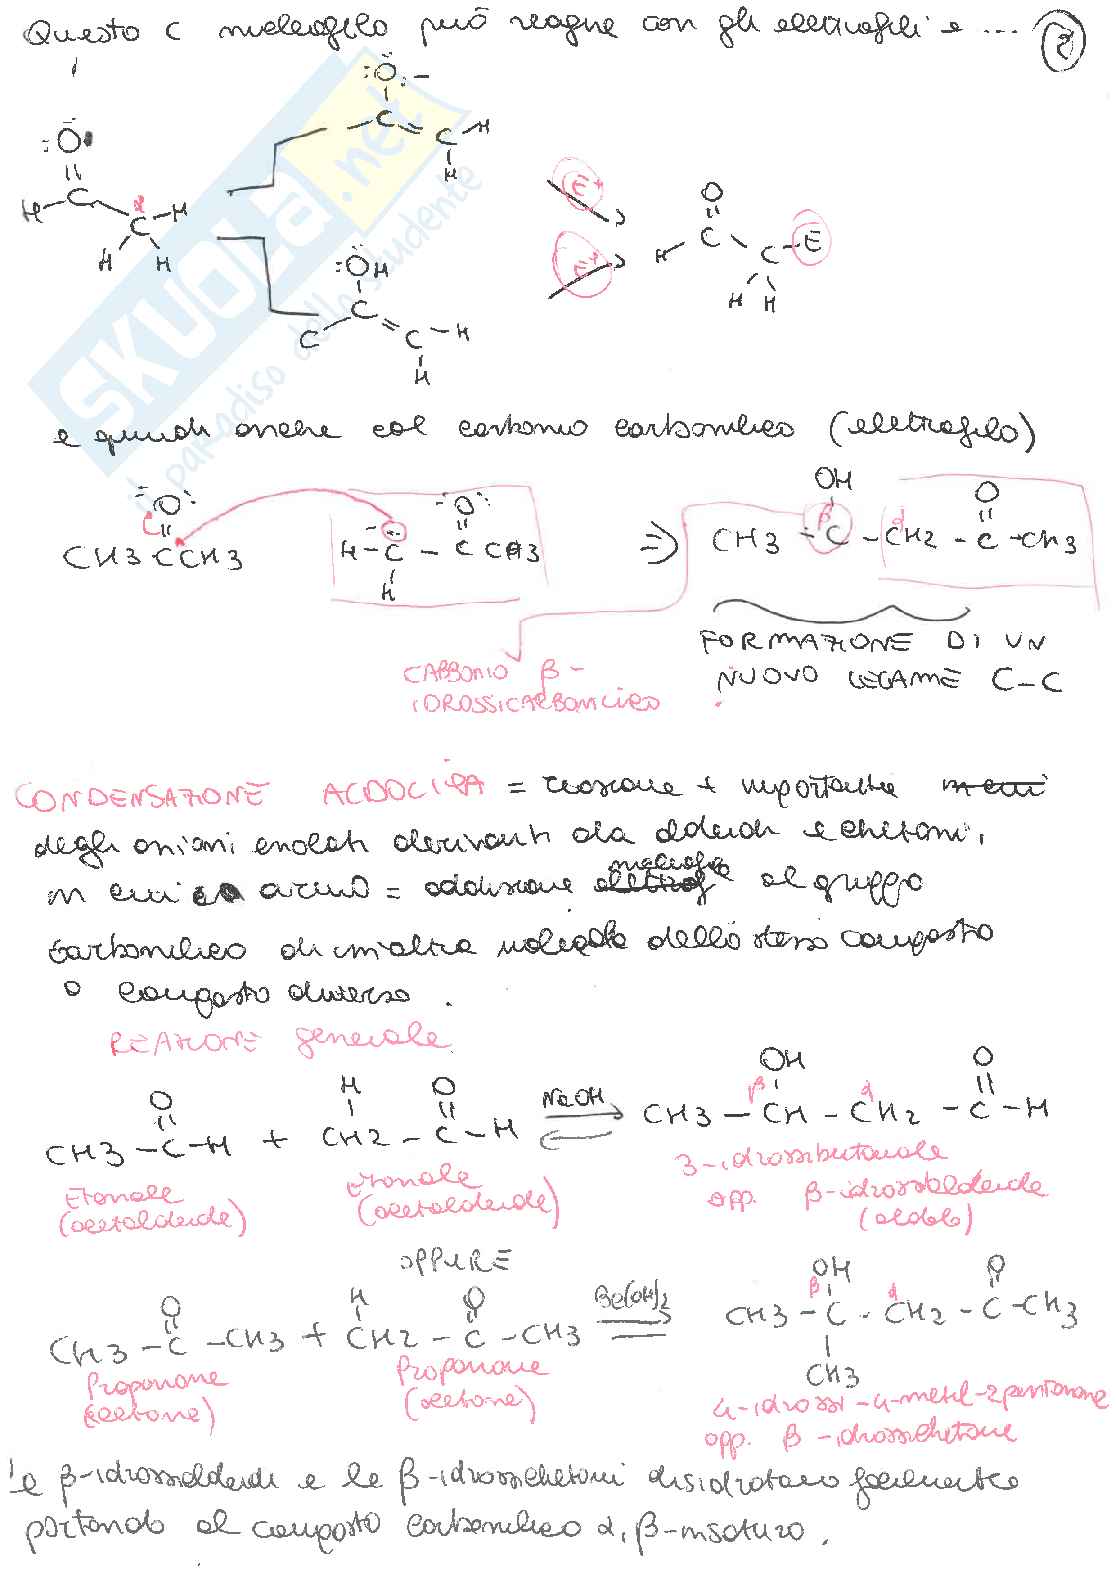 Questo C nucleofilo può reagire con gli elettrofili e ... 2
e quindi anche col carbonio carbonilico (elettrofilo)
CH3 C CH3
H - C - C CH3
⇒ CH3 - C - CH2 - C - CH3
OH β α O
FORMAZIONE DI UN
NUOVO LEGAME C-C
CARBONIO β-
IDROSSICARBONILICO
CONDENSAZIONE ALDOLICA = reazione + importante
degli anioni enolati derivanti da aldeidi e chetoni,
in cui = addizione nucleofila al gruppo
carbonilico di un'altra molecola dello stesso composto
o composto diverso.
REAZIONE generale
CH3 - C - H + CH2 - C - H NaOH CH3 - CH - CH2 - C - H
Etanale
(acetaldeide)
Etanale
(acetaldeide)
3-idrossibutanale
opp. β-idrossialdeide
(aldolo)
OPPURE
CH3 - C - CH3 + CH2 - C - CH3 Ba(OH)2 CH3 - C - CH2 - C - CH3
CH3
Propanone
(acetone)
Propanone
(acetone)
4-idrossi-4-metil-2pentanone
opp. β-idrossichetone
Le β-idrossialdeidi e le β-idrossichetoni disidratano facilmente
portando al composto carbonilico α,β-insaturo.
SKUOLA.net
il paradiso dello studente